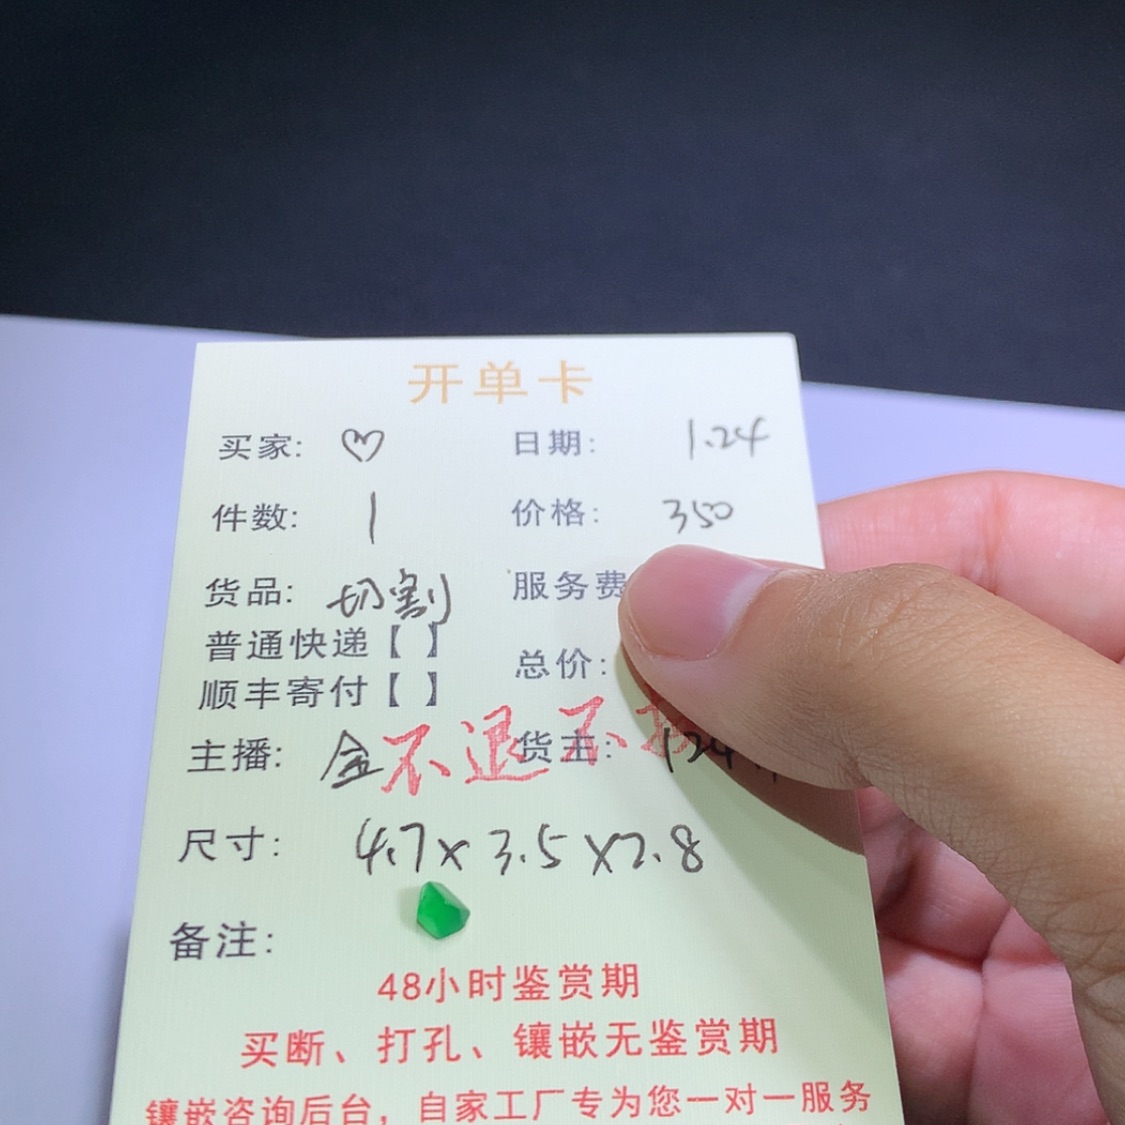 开单卡
买家: ♡ 日期: 1.24
件数: 1 价格: 350
货品: 切割 服务费
普通快递【 】
总价:
顺丰寄付【 】
主播: 金 货主: 124
不退不换
尺寸: 4.7×3.5×2.8
备注:
48小时鉴赏期
买断、打孔、镶嵌无鉴赏期
镶嵌咨询后台，自家工厂专为您一对一服务